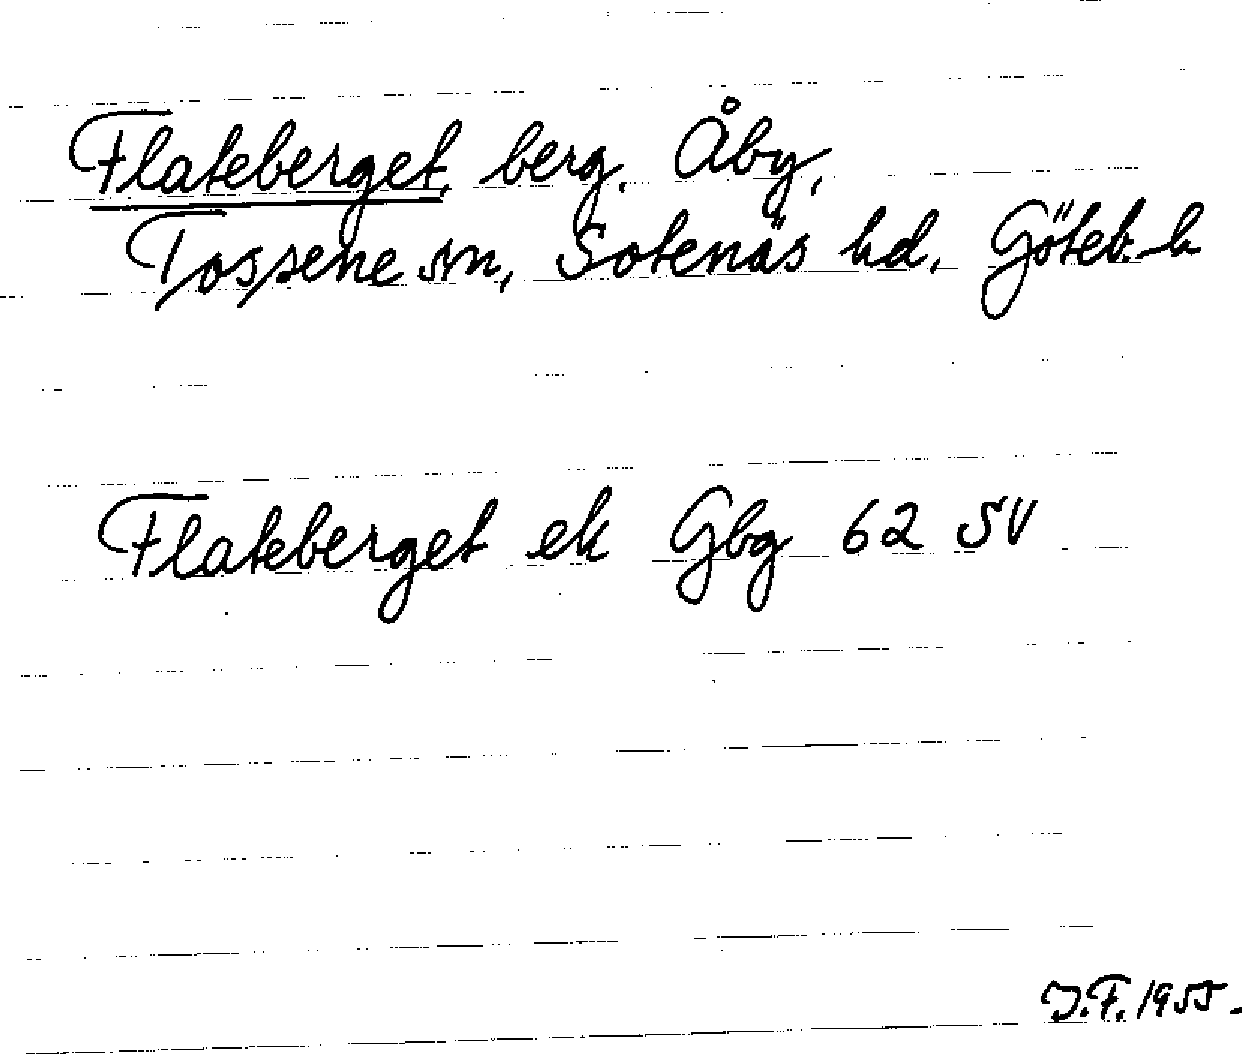 Flateberget, berg. Åby,
Tossene sn, Sotenäs hd, Göteb. l.
Flateberget ek Gbg 62 SV
J.F. 1955.